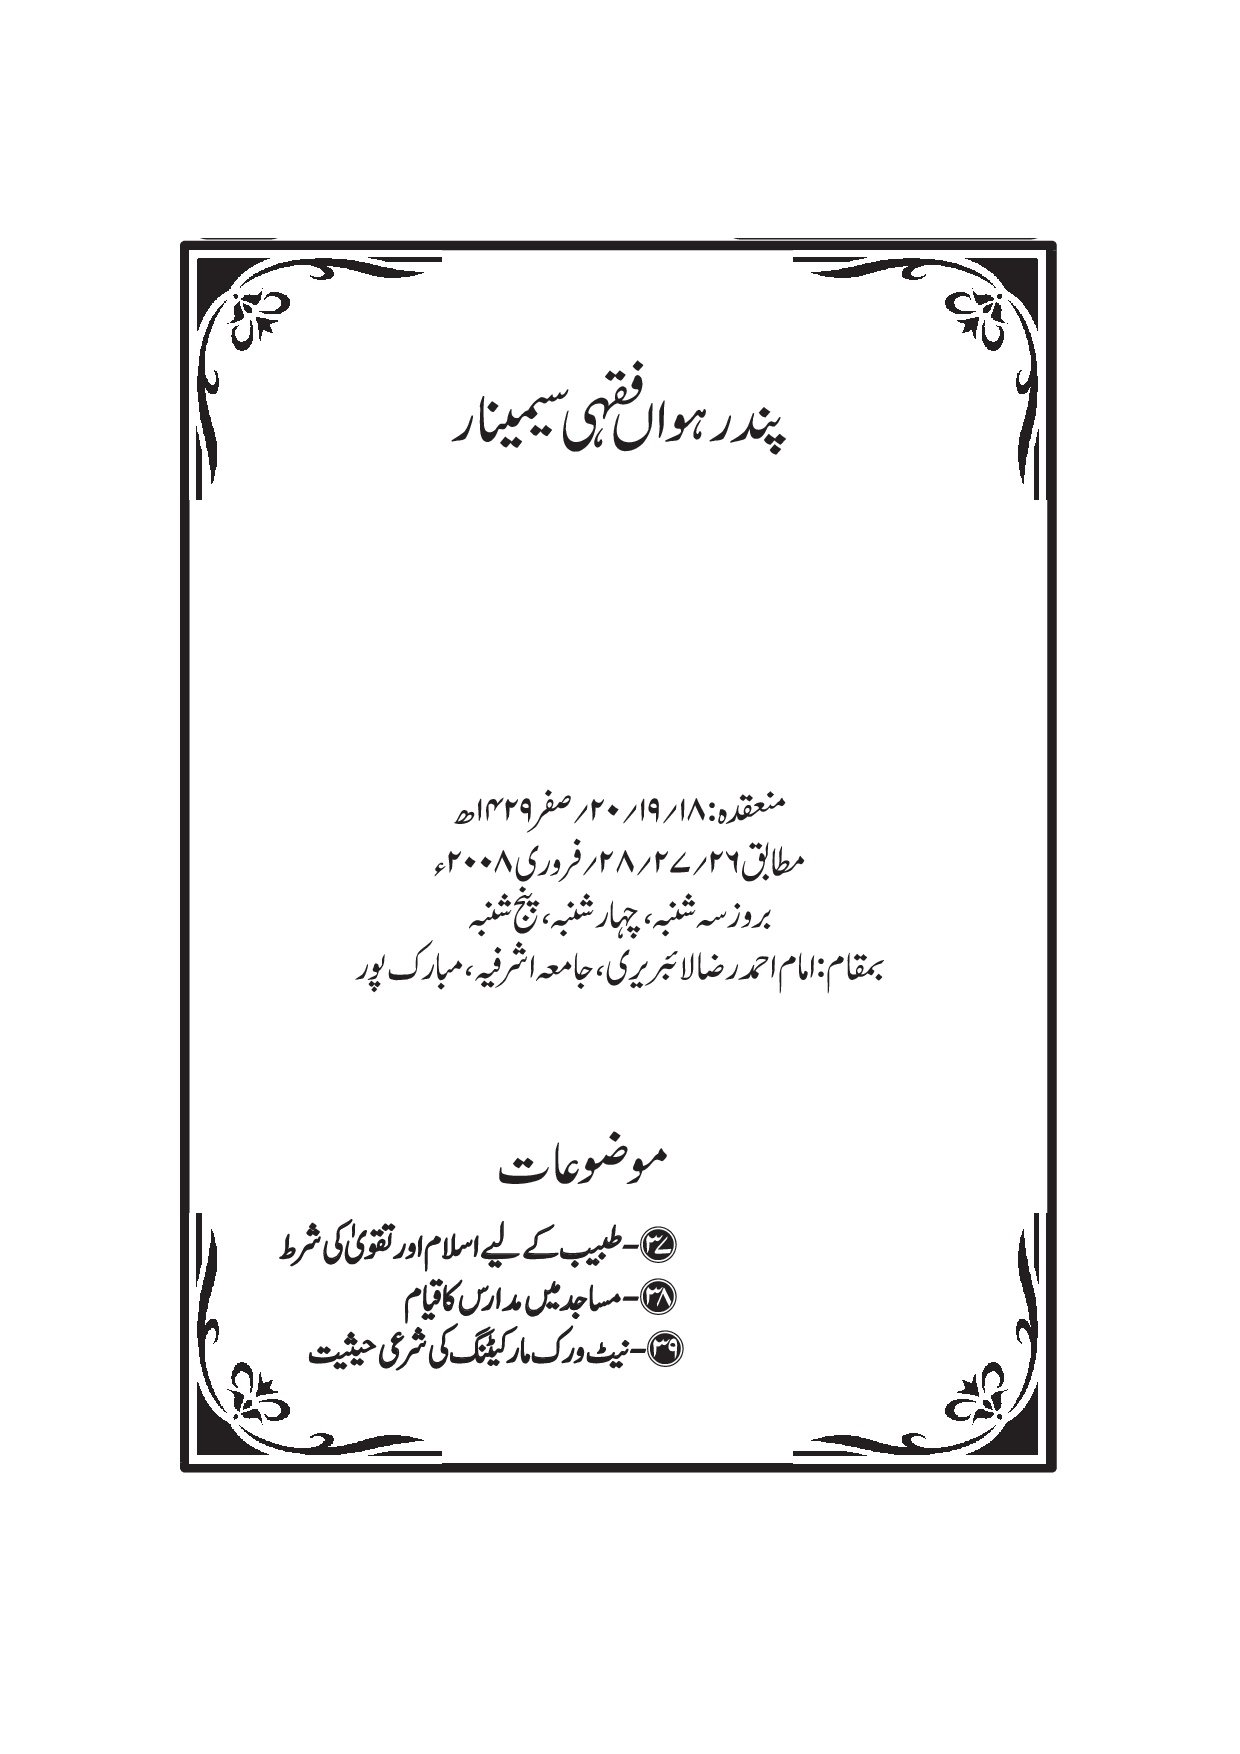 پندرہواں فقہی سیمینار
منعقدہ: ۱۸/ ۱۹/ ۲۰/ صفر ۱۴۲۹ھ
مطابق ۲۶/ ۲۷/ ۲۸/ فروری ۲۰۰۸ء
بروز سہ شنبہ، چہار شنبہ، پنج شنبہ
بمقام: امام احمد رضا لائبریری، جامعہ اشرفیہ، مبارک پور
موضوعات
۳۷- طبیب کے لیے اسلام اور تقویٰ کی شرط
۳۸- مساجد میں مدارس کا قیام
۳۹- نیٹ ورک مارکیٹنگ کی شرعی حیثیت